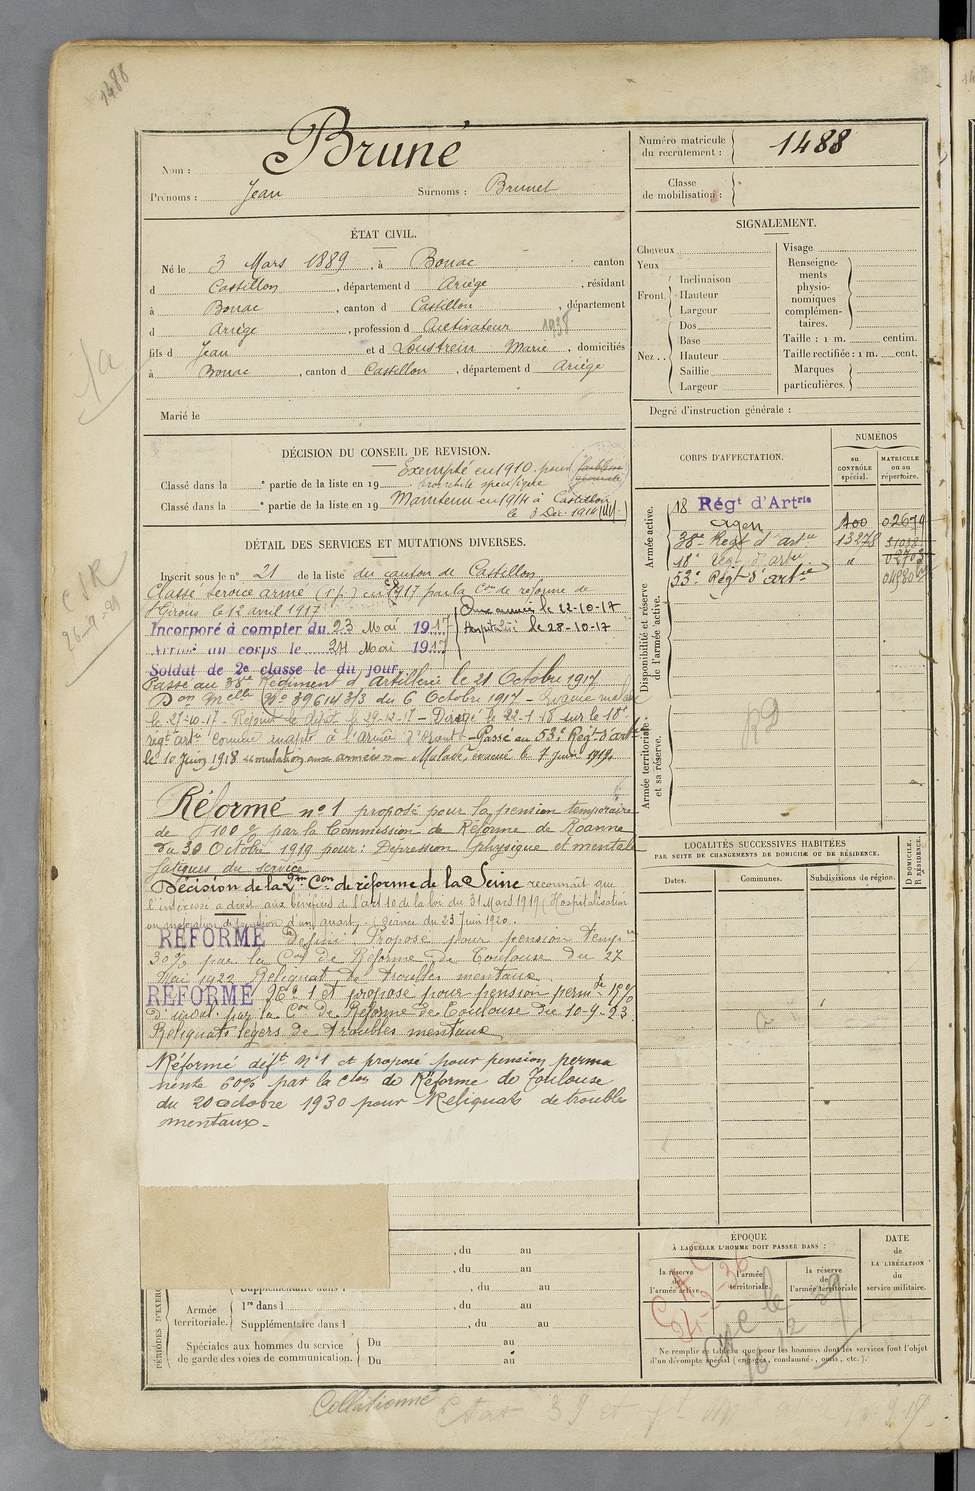 1488
Nom : Bruné
Prénoms : Jean Surnoms : Brunet
Numéro matricule du recrutement : 1488
Classe de mobilisation :
ÉTAT CIVIL.
Né le 3 Mars 1889, à Bonac canton
d Castillon, département d Ariège, résidant
à Bonac, canton d Castillon, département
d Ariège, profession d Cultivateur 1938
fils d Jean et d Loustrein Marie, domiciliés
à Bonac, canton d Castillon, département d Ariège
Marié le
SIGNALEMENT.
Cheveux
Yeux
Front Inclinaison
Hauteur
Largeur
Nez Dos
Base
Hauteur
Saillie
Largeur
Visage
Renseignements physionomiques complémentaires.
Taille : 1 m. centim.
Taille rectifiée : 1 m. cent.
Marques particulières.
Degré d'instruction générale :
DÉCISION DU CONSEIL DE REVISION.
Exempté en 1910 pour
Classé dans la e partie de la liste en 19
Classé dans la e partie de la liste en 19 Maintenu en 1914 à Castillon
le 3 Dec. 1914
DÉTAIL DES SERVICES ET MUTATIONS DIVERSES.
Inscrit sous le n° 21 de la liste du canton de Castillon
Classé service armé en 1917 par la Con de reforme de
St Girons le 12 avril 1917
Aux armées le 22-10-17
Incorporé à compter du 23 Mai 1917
Hospitalisé le 28-10-17
Arrivé au corps le 24 Mai 1917
Soldat de 2e classe le dit jour.
Passé au 38e Régiment d'artillerie le 21 Octobre 1917
Don Melle No 39614 3/3 du 6 Octobre 1917 - Evacué malade
le 27-10-17 - Rejoint le dépôt le 29-12-17 - Dirigé le 22-1-18 sur le 18e
regt arte comme inapte à l'armée d'Orient - Passé au 53e Regt d'arte
le 10 Juin 1918 Malade, évacué le 7 juin 1919.
Réformé n° 1 proposé pour la pension temporaire
de 100 % par la Commission de Réforme de Roanne
du 30 Octobre 1919 pour : Dépression physique et mentale
fatigues du service
Décision de la 2me Con de réforme de la Seine reconnait que
l'intéressé a droit aux bénéfices de l'art 10 de la loi du 31 Mars 1919 (Hospitalisation
ou majoration de pension d'un quart). Séance du 23 Juin 1920.
RÉFORMÉ Défini Proposé pour pension temp.
30% par la Con de Réforme de Toulouse du 27
Mai 1922 Reliquat de troubles mentaux
RÉFORMÉ N° 1 et proposé pour pension permte
d'inval. par la Con de Réforme de Toulouse du 10-9-23
Reliquats légers de troubles mentaux
Réformé deft N° 1 et proposé pour pension perma
nente 60% par la Cion de Réforme de Toulouse
du 20 octobre 1930 pour Reliquats de troubles
mentaux.
CORPS D'AFFECTATION.
NUMÉROS
au CONTRÔLE spécial.
MATRICULE ou au répertoire.
Armée active.
18 Régt d'Artrie
Agen
38e Regt d'arte 13278
18e regt d'arte "
53e Regt d'artie
Disponibilité et réserve de l'armée active.
Armée territoriale et sa réserve.
LOCALITÉS SUCCESSIVES HABITÉES
PAR SUITE DE CHANGEMENTS DE DOMICILE OU DE RÉSIDENCE.
Dates.
Communes.
Subdivisions de région.
D DOMICILE.
R RÉSIDENCE.
PÉRIODES D'EXERC
, du au
, du au
Supplémentaire dans l , du au
Armée territoriale.
1re dans l , du au
Supplémentaire dans l , du au
Spéciales aux hommes du service de garde des voies de communication.
Du au
Du au
ÉPOQUE
À LAQUELLE L'HOMME DOIT PASSER DANS :
la réserve de l'armée active.
l'armée territoriale.
la réserve de l'armée territoriale
DATE de LA LIBÉRATION du service militaire.
Ne remplir ce tableau que pour les hommes dont les services font l'objet
d'un décompte spécial (engagés, condamnés, omis, etc.).
Collationné